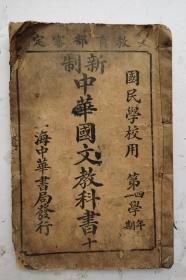 教育部審定
國民學校用
第四學年
第一學期
新制
中華國文教科書十
上海中華書局發行